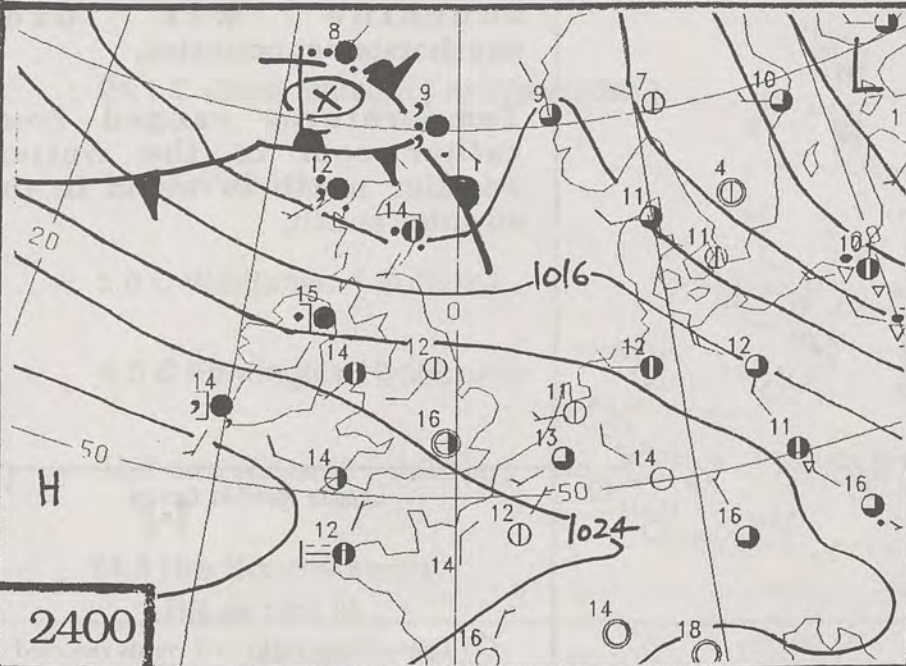 8
9
9
7
10
L
12
14
11
4
11
10
20
1016
0
15
14
12
12
12
14
11
16
13
14
11
50
H
14
50
16
12
1024
12
16
14
2400
16
14
18